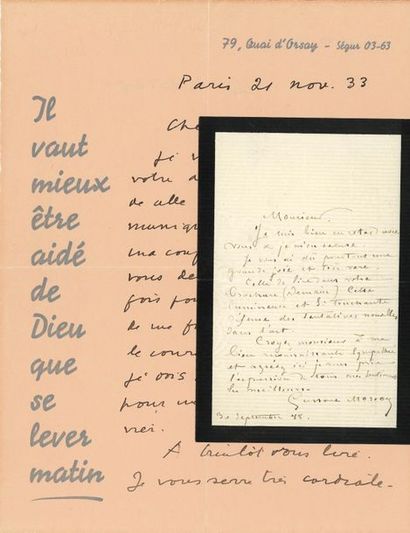 79, Quai d'Orsay - Ségur 03-63
Paris 21 nov. 33
Il
vaut
mieux
être
aidé
de
Dieu
que
se
lever
matin
Che
Je v
votre d
de alle
munique
ma conf
vous de
fois pou
de me f
le cour
Je vois
pour u
vrez.
A bientôt vous lire.
Je vous serre très cordiale-
Monsieur,
Je suis bien en retard avec
vous et je m'en excuse
Je vous ai dû pourtant une
grande joie et très rare.
Celle de lire dans votre
brochure (Demain) Cette
lumineuse et si touchante
défense des tentatives nouvelles
dans l'art
Croyez monsieur à ma
bien reconnaissante sympathie
et agréez ici je vous prie
l'expression de tous mes sentiments
les meilleurs
Gustave Moreau
30 Septembre 85.